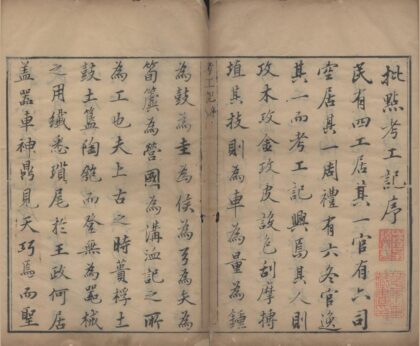 批點考工記序
民有四工居其一官有六司
空居其一周禮有六冬官逸
其一而考工記興焉其人則
攻木攻金攻皮設色刮摩摶
埴其技則為車為量為鍾
為鼓為圭為侯為弓為矢為
筍簴為營國為溝洫記之所
為工也夫上古之時蕢桴土
鼓土簋陶匏而登無為器械
之用纖悉瑣尾於王政何居
蓋器車神鼎見天巧焉而聖